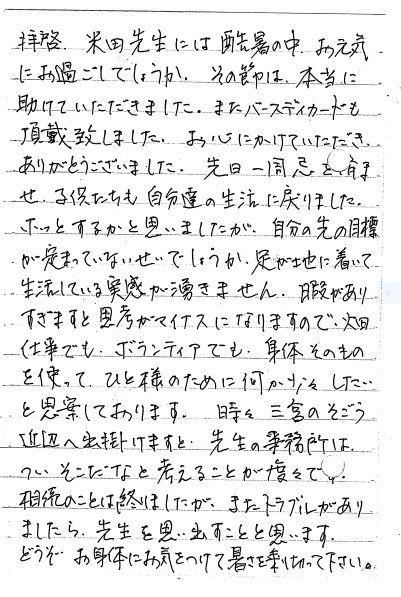 拝啓、米田先生には酷暑の中、お元気
にお過ごしでしょうか。その節は、本当に
助けていただきました。またバースディカードも
頂戴致しました。お心にかけていただき、
ありがとうございました。先日一周忌を済ま
せ、子供たちも自分達の生活に戻りました。
ホッとするかと思いましたが、自分の先の目標
が定まっていないせいでしょうか、足が地に着いて
生活している実感が湧きません。暇があり
すぎますと思考がマイナスになりますので、畑
仕事でも、ボランティアでも、身体そのもの
を使って、ひと様のために何か少々したい
と思案しております。時々三宮のそごう
近辺へ出掛けますと、先生の事務所は、
ついそこだなと考えることが度々で、
相続のことは終りましたが、またトラブルがあり
ましたら、先生を思い出すことと思います。
どうぞお身体にお気をつけて暑さを乗り切って下さい。